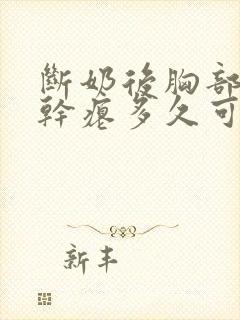 斷奶後胸部
幹癟多久可
新丰